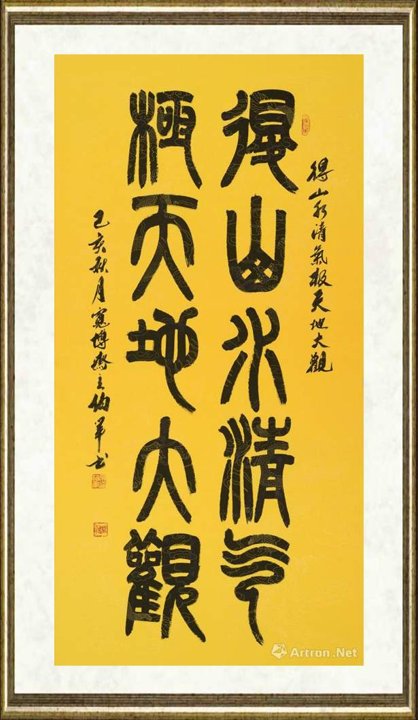 得山水清氣極天地大觀
得山水清氣
極天地大觀
己亥秋月寬博齋主伯軍書
Artron.Net